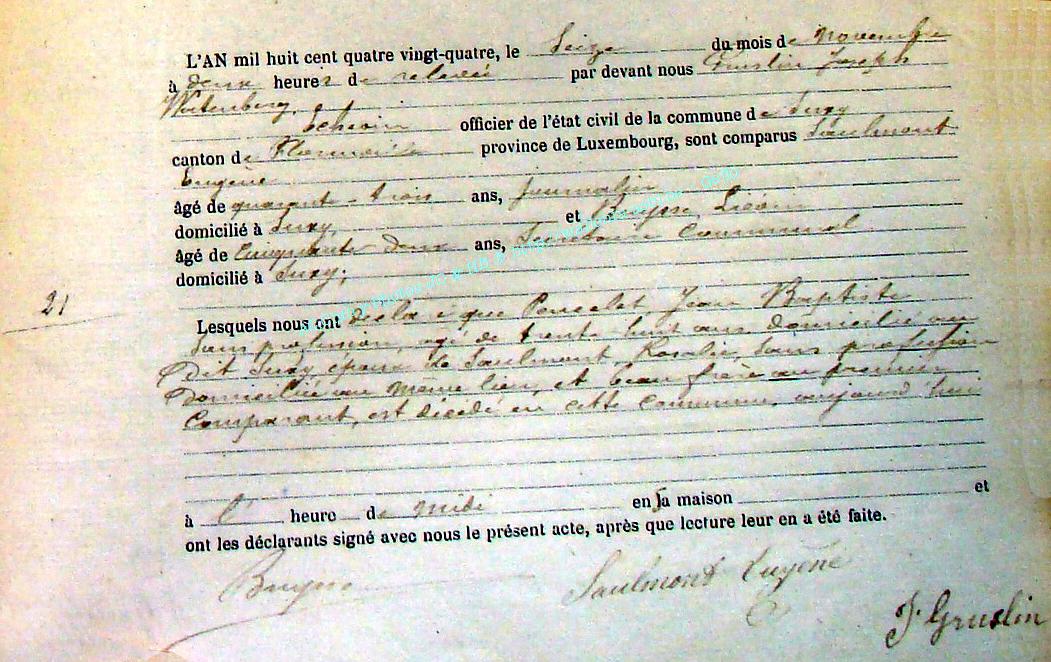 L'AN mil huit cent quatre vingt-quatre, le Seize du mois de novembre
à deux heures de relevée par devant nous Gruslin Joseph
échevin officier de l'état civil de la commune de Suxy
canton de Florenville province de Luxembourg, sont comparus Saulmont
Eugène
âgé de quarante-trois ans, journalier
domicilié à Suxy, et Buysse
âgé de Cinquante deux ans, Communal
domicilié à Suxy;
21
Lesquels nous ont déclaré que Poncelet, Jean Baptiste
sans profession, agé de trente huit ans domicilié au
Dit Suxy époux de Saulmont, Rosalie, sans profession
Domiciliée au même lieu, et beau frère au premier
Comparant, est décédé en cette commune aujourd'hui
à l' heure de midi en sa maison et
ont les déclarants signé avec nous le présent acte, après que lecture leur en a été faite.
Buysse Saulmond Eugène
J Gruslin